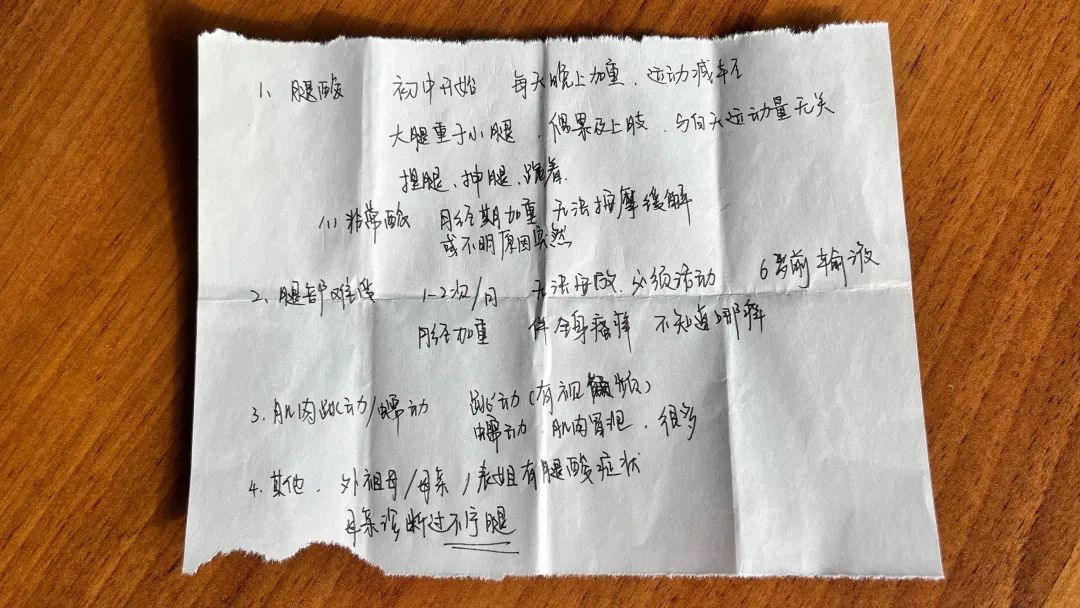 1、腿酸 初中开始 每天晚上加重、运动减轻
大腿重于小腿、偶累及上肢、与白天运动量无关
捏腿、抻腿、跪着.
(1) 非常酸 月经期加重 无法按摩缓解
或不明原因突然
2、腿部难受 1-2次/月 无法安放、必须活动 6岁前输液
月经加重 伴全身瘙痒 不知道哪痒
3、肌肉跳动/蠕动 跳动(有视频)
蠕动、肌肉冒泡、很多
4、其他、外祖母/母亲/表姐有腿酸症状
母亲诊断过不宁腿